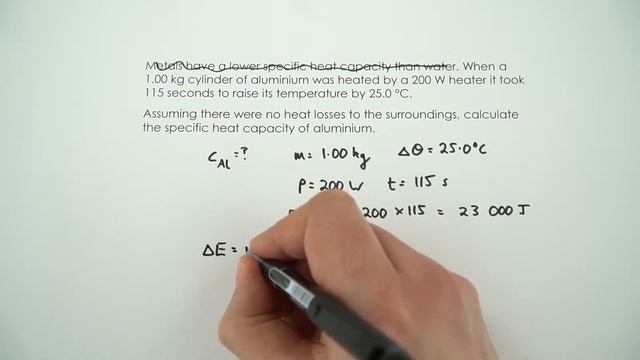 Metals have a lower specific heat capacity than water. When a
1.00 kg cylinder of aluminium was heated by a 200 W heater it took
115 seconds to raise its temperature by 25.0 °C.
Assuming there were no heat losses to the surroundings, calculate
the specific heat capacity of aluminium.
C_Al = ? m = 1.00 kg Δθ = 25.0°C
P = 200 W t = 115 s
200 × 115 = 23 000 J
ΔE =